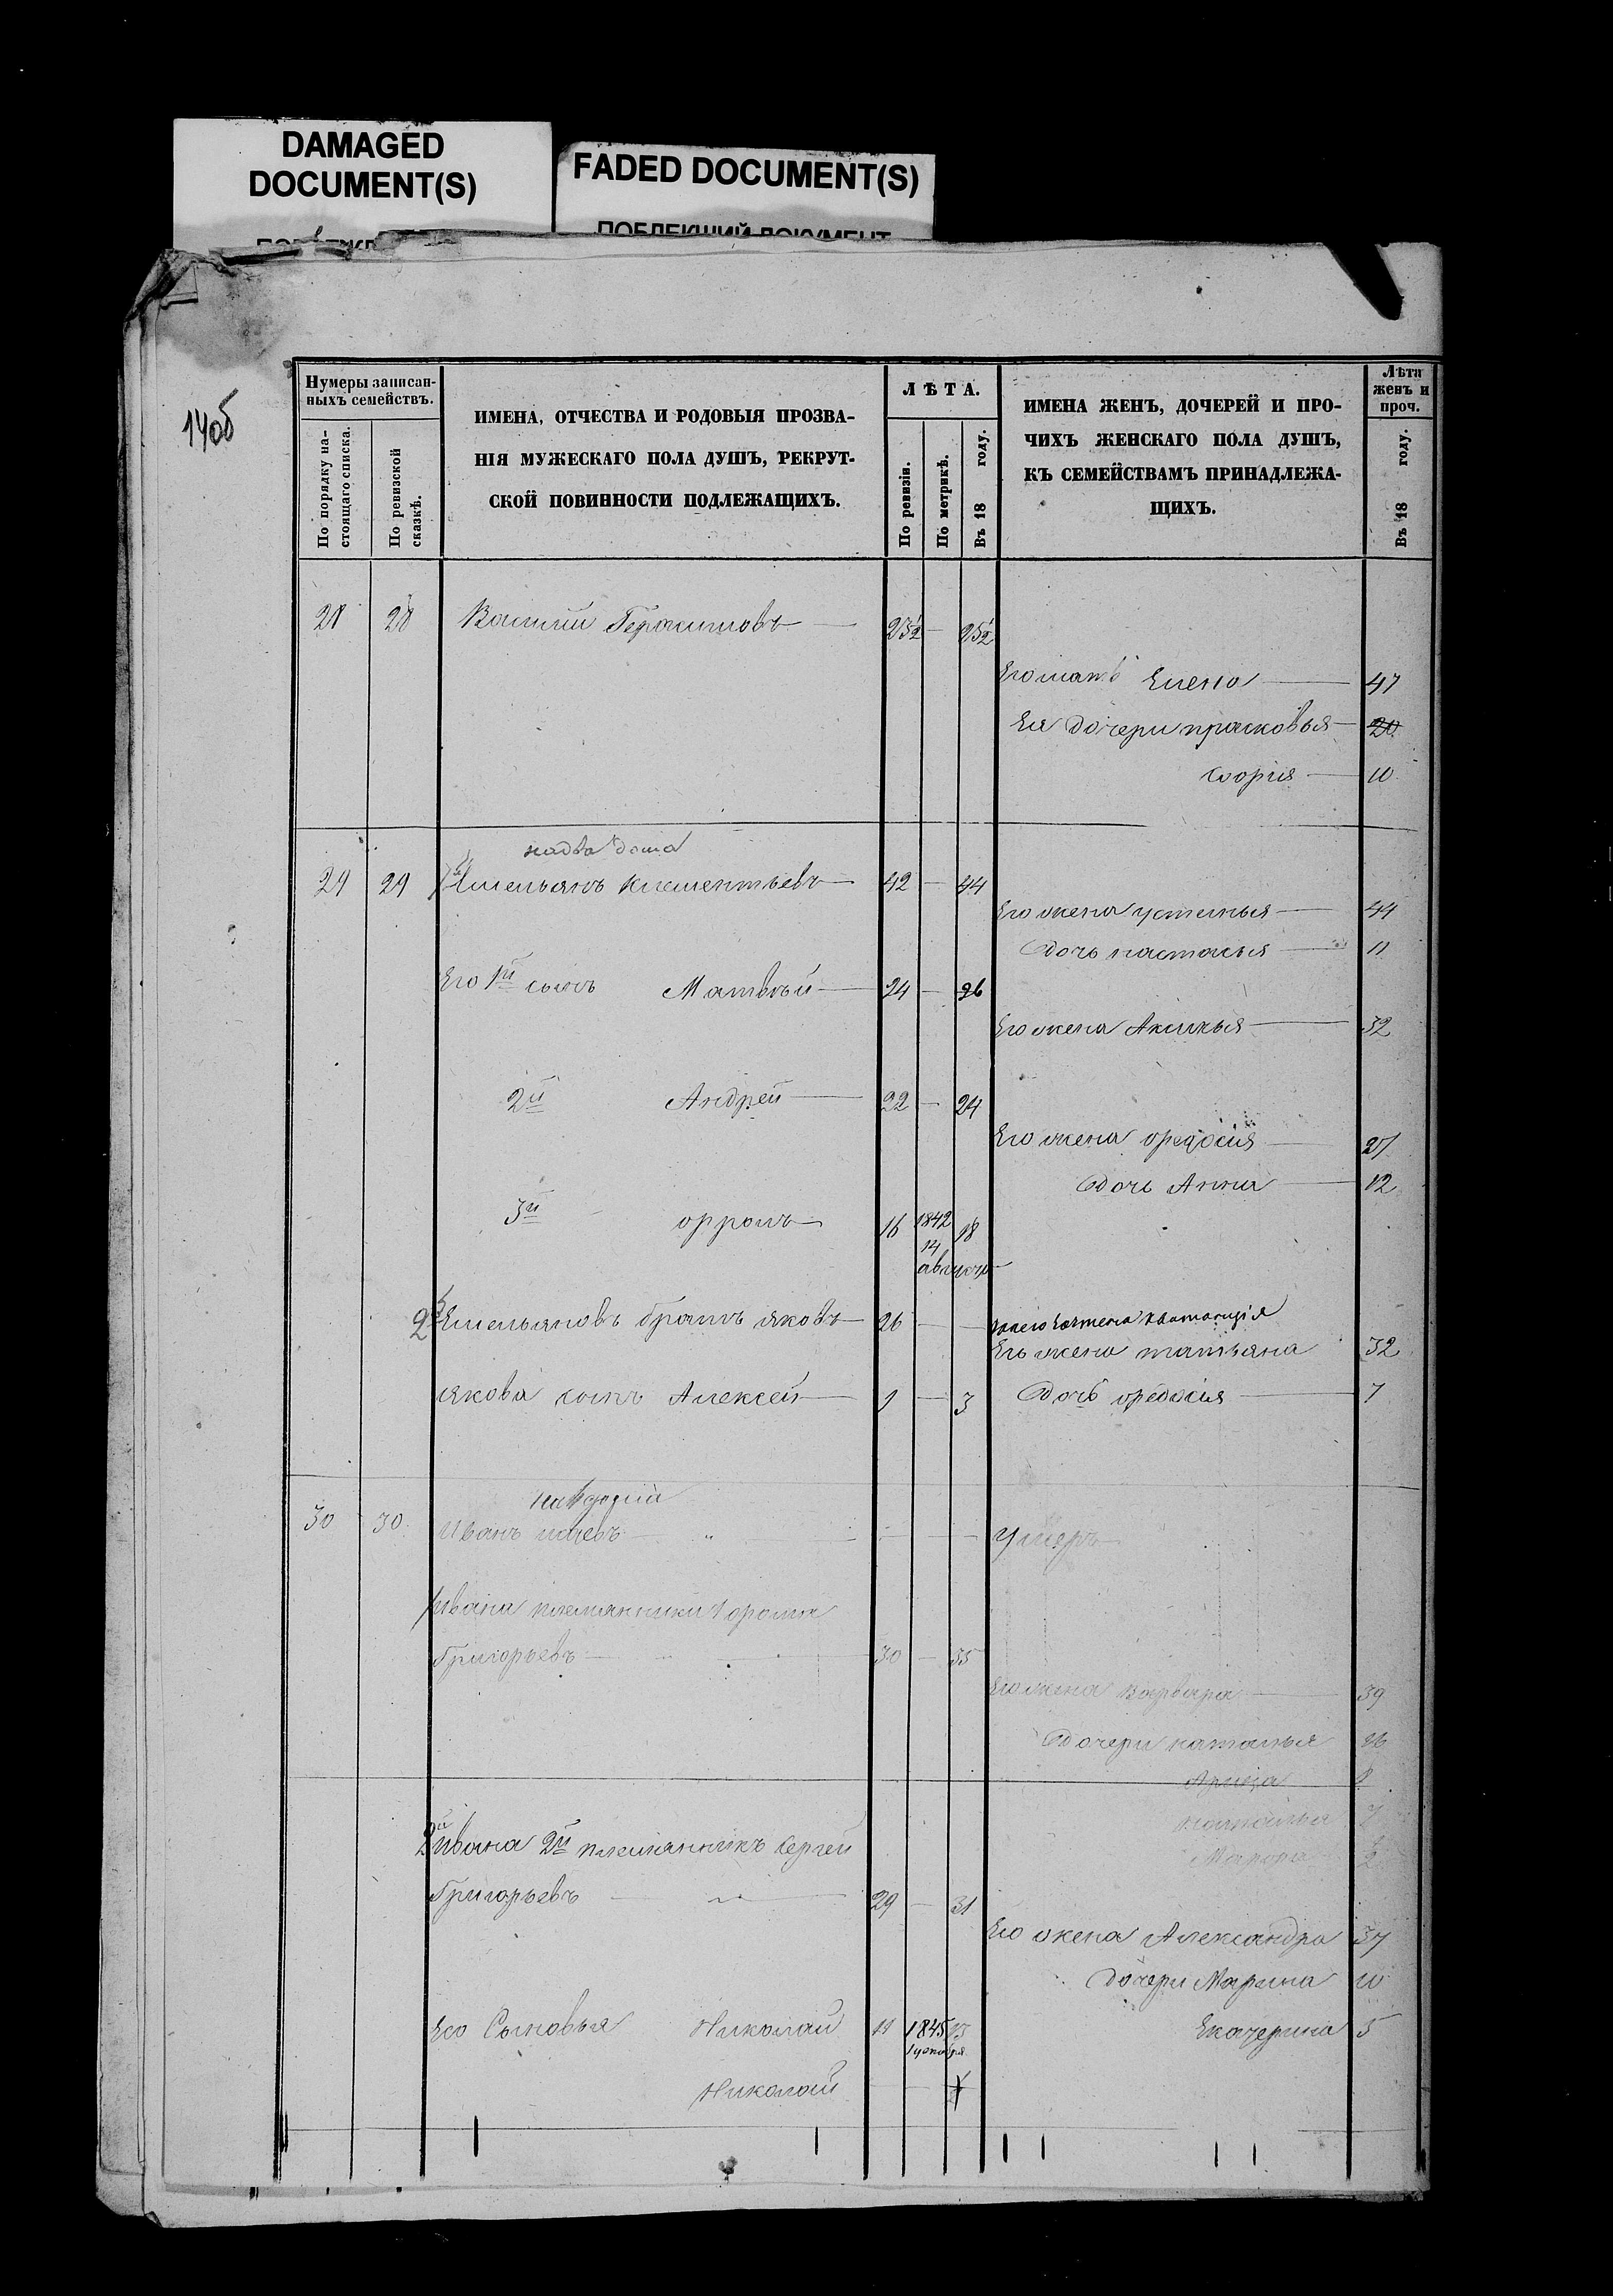 DAMAGED
DOCUMENT(S)
FADED DOCUMENT(S)
ПОБЛЕКШИЙ ДОКУМЕНТ
140б
Нумеры записан-
ныхъ семействъ.
По порядку на-
стоящаго списка.
По ревизской
сказкѣ.
ИМЕНА, ОТЧЕСТВА И РОДОВЫЯ ПРОЗВА-
НІЯ МУЖЕСКАГО ПОЛА ДУШЪ, РЕКРУТ-
СКОЙ ПОВИННОСТИ ПОДЛЕЖАЩИХЪ.
ЛѢТА.
По ревизіи.
По метрикѣ.
Въ 18 году.
ИМЕНА ЖЕНЪ, ДОЧЕРЕЙ И ПРО-
ЧИХЪ ЖЕНСКАГО ПОЛА ДУШЪ,
КЪ СЕМЕЙСТВАМЪ ПРИНАДЛЕЖА-
ЩИХЪ.
Лѣта
женъ и
проч.
Въ 18 году.
28 28 Василій Герасимовъ 23½ — 25½
Его мать Елена 47
Ея дочери прасковья 20
Софія 10
на два дома
29 29 Емельянъ Клементьевъ 42 — 44
Его жена устинья 44
Дочь настасья 11
Его 1й сынъ Матвѣй 24 — 26
Его жена Аксинья 32
2й Андрей 22 — 24
Его жена Ѳедосія 27
Дочь Анна 12
3й Фролъ 16 1842 18
14
августа
2й Емельяновъ братъ яковъ 26 —
Его жена татьяна 32
якова сынъ Алексей 1 — 3 Дочь Ѳедосія 7
30 30 Иванъ — — — Умеръ
Ивана племянники
Григорьевъ 30 — 35
Его жена варвара 39
Дочери наталья 16
наталья 7
2й ивана 2й племянникъ Сергей
Григорьевъ 29 — 31
Его жена Александра 37
дочери Марина 10
Его Сыновья Николай 11 1845 13 Екатерина 5
Николай